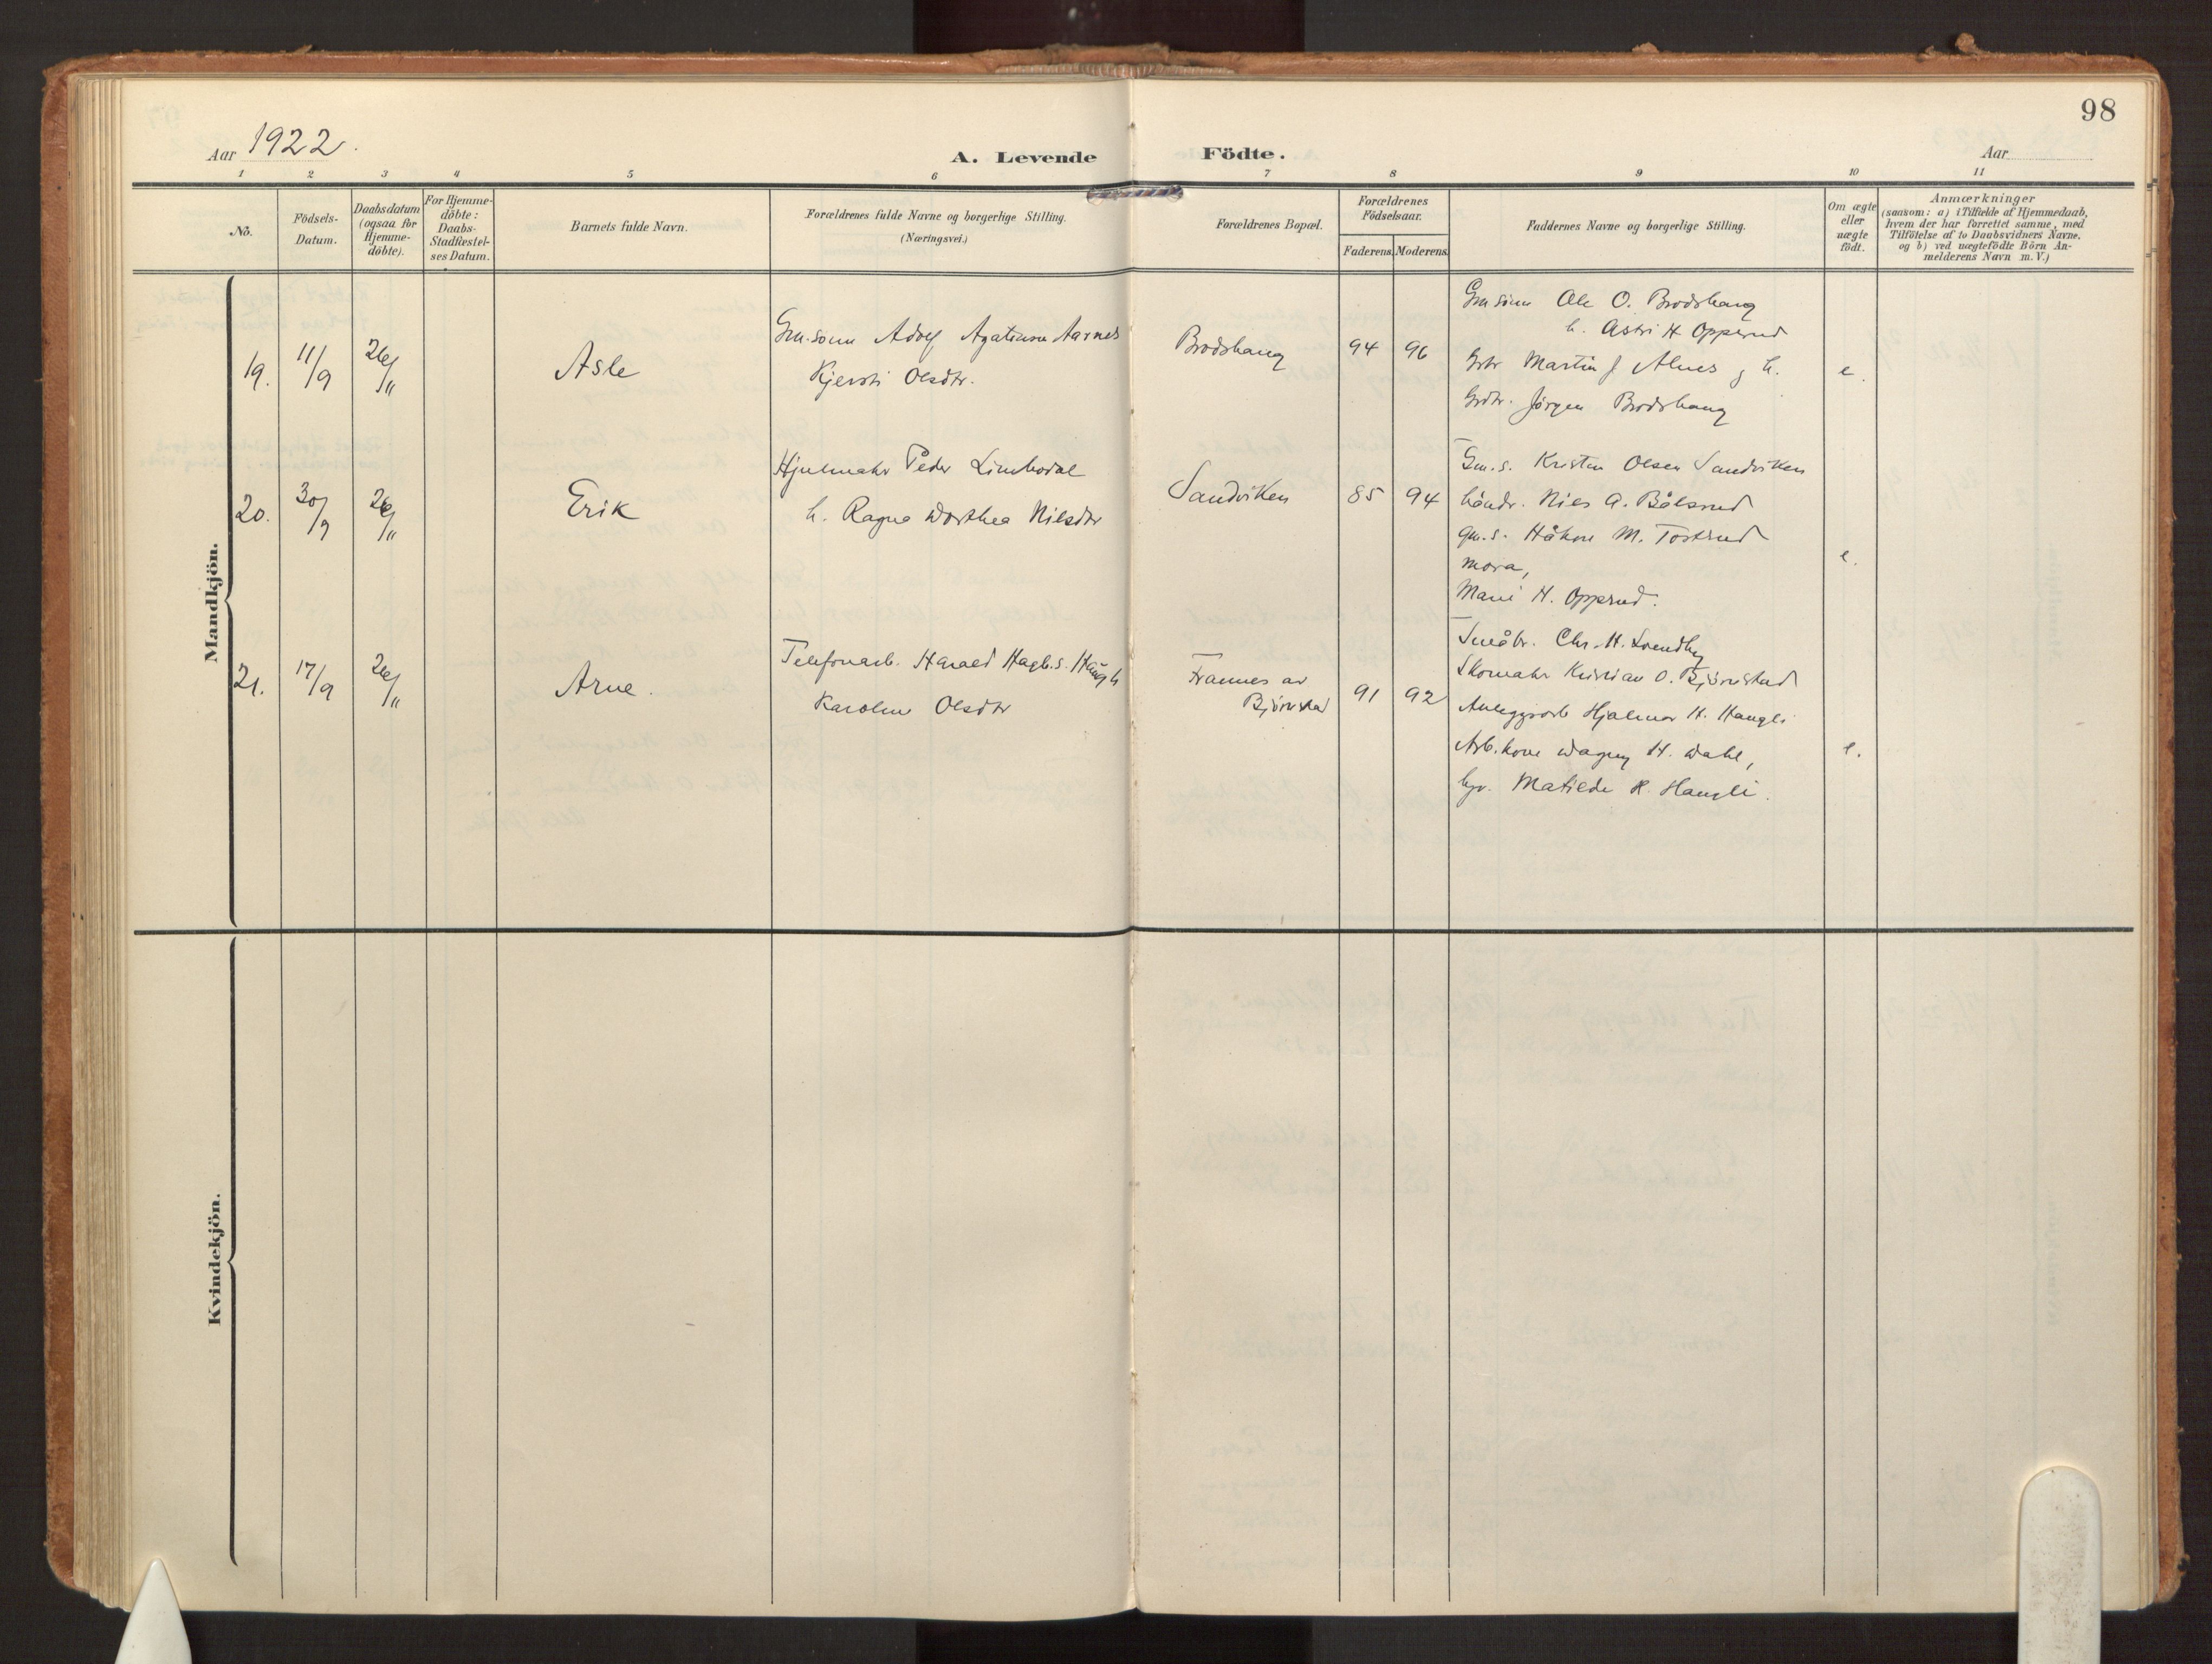 98
Aar 1922.
A. Levende Födte.
Aar
1 2 3 4 5 6 7 8 9 10 11
No.
Födsels-
Datum.
Daabsdatum
(ogsaa for
Hjemme-
döbte).
For Hjemme-
döbte:
Daabs-
Stadfæstel-
ses Datum.
Barnets fulde Navn.
Forældrenes fulde Navne og borgerlige Stilling.
(Næringsvei.)
Forældrenes Bopæl.
Forældrenes
Födselsaar.
Faderens. Moderens.
Faddernes Navne og borgerlige Stilling.
Om ægte
eller
uægte
födt.
Anmærkninger
(saasom: a) i Tilfælde af Hjemmedaab,
hvem der har forrettet samme, med
Tilföielse af to Daabsvidners Navne,
og b) ved uægtefödte Börn An-
melderens Navn m. V.)
Mandkjön.
19. 11/9 26/11 Asle
Gm.sönn Adolf Agatinus Aarnes
Kjersti Olsdtr.
Brodshaug 94 96
Gm sönn Ole O. Brodshaug
h. Astri H Opperud
Martin J Alnes g h.
Jörgen Brodshaug
e.
20. 30/9 26/11 Erik
Hjulmakr Peder Limbodal
h. Ragna Dorthea Nilsdtr
Sandviken 85 94
Gm.s. Kristen Olsen Sandviken
håndv. Nils A. Bålsrud
gm.s. Håkon M. Tostrud
mora,
Marie H. Opperud.
e.
21. 17/9 26/11 Arne.
Telefonarb. Harald Hagb.s.
Karoline Olsdtr
Frammes av
Björnstad
91 92
Småbr. Chr. H. Svendby
Skomakr Kristian O. Björnstad
Anleggsarb Hjalmar H. Haugli
Arb.kone Dagny H. Dahl,
Matilde H. Haugli.
e.
Kvindekjön.